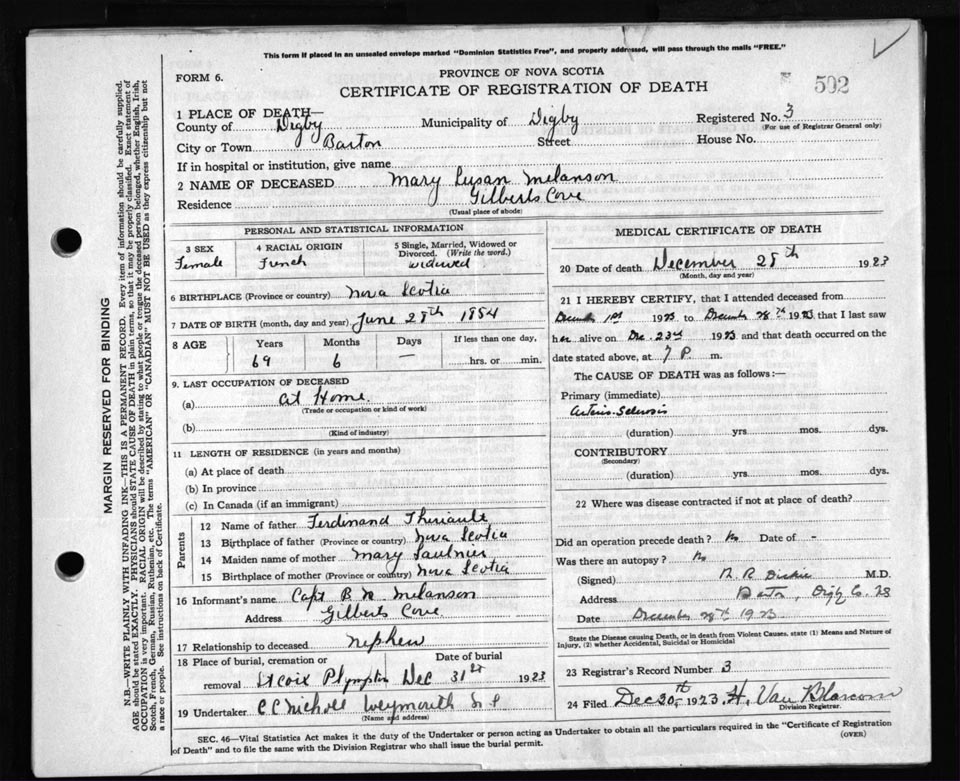 This form if placed in an unsealed envelope marked "Dominion Statistics Free", and properly addressed, will pass through the mails "FREE."
FORM 6.
PROVINCE OF NOVA SCOTIA
CERTIFICATE OF REGISTRATION OF DEATH
502
1 PLACE OF DEATH—
County of Digby Municipality of Digby Registered No. 3
(For use of Registrar General only)
City or Town Barton Street House No.
If in hospital or institution, give name
2 NAME OF DECEASED Mary Lusan Melanson
Residence Gilberts Cove
(Usual place of abode)
PERSONAL AND STATISTICAL INFORMATION
3 SEX 4 RACIAL ORIGIN 5 Single, Married, Widowed or Divorced. (Write the word.)
Female French widowed
6 BIRTHPLACE (Province or country) Nova Scotia
7 DATE OF BIRTH (month, day and year) June 28th 1854
8 AGE Years Months Days If less than one day,
69 6 — hrs. or min.
9. LAST OCCUPATION OF DECEASED
(a) At Home.
(Trade or occupation or kind of work)
(b)
(Kind of industry)
11 LENGTH OF RESIDENCE (in years and months)
(a) At place of death
(b) In province
(c) In Canada (if an immigrant)
Parents
12 Name of father Ferdinand Theriault
13 Birthplace of father (Province or country) Nova Scotia
14 Maiden name of mother Mary Saulnier
15 Birthplace of mother (Province or country) Nova Scotia
16 Informant's name Capt B. N. Melanson
Address Gilberts Cove
17 Relationship to deceased nephew
18 Place of burial, cremation or removal Date of burial
St Coix Plympton Dec 31st 1923
19 Undertaker C C Nicholl Weymouth N S
(Name and address)
MEDICAL CERTIFICATE OF DEATH
20 Date of death December 28th 1923
(Month, day and year)
21 I HEREBY CERTIFY, that I attended deceased from
December 1st 1923 to December 28th 1923 that I last saw
her alive on Dec. 23rd 1923 and that death occurred on the
date stated above, at 7 P. m.
The CAUSE OF DEATH was as follows:—
Primary (immediate)
Arterio-Sclerosis
(duration) yrs. mos. dys.
CONTRIBUTORY
(Secondary)
(duration) yrs. mos. dys.
22 Where was disease contracted if not at place of death?
Did an operation precede death? No Date of -
Was there an autopsy? No
(Signed) N. R. Dickie M.D.
Address Barton, Digby Co. NS
Date December 28th 1923.
State the Disease causing Death, or in death from Violent Causes, state (1) Means and Nature of Injury, (2) whether Accidental, Suicidal or Homicidal
23 Registrar's Record Number 3
24 Filed Dec 30th, 1923. H. Van Blarcom
Division Registrar.
SEC. 46—Vital Statistics Act makes it the duty of the Undertaker or person acting as Undertaker to obtain all the particulars required in the "Certificate of Registration
of Death" and to file the same with the Division Registrar who shall issue the burial permit.
(OVER)
MARGIN RESERVED FOR BINDING
N.B.—WRITE PLAINLY WITH UNFADING INK—THIS IS A PERMANENT RECORD. Every item of information should be carefully supplied.
AGE should be stated EXACTLY. PHYSICIANS should STATE CAUSE OF DEATH in plain terms, so that it may be properly classified. Exact statement of
OCCUPATION is very important. RACIAL ORIGIN will be described by stating to what people or tongue the deceased person belonged, whether English, Irish,
Scotch, French, German, Russian, Ruthenian, etc. The terms "AMERICAN" OR "CANADIAN" MUST NOT BE USED as they express citizenship but not
a race or people. See instructions on back of Certificate.